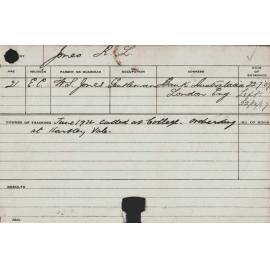 Jones R. L.
AGE RELIGION PARENT OR GUARDIAN OCCUPATION ADDRESS DATE OF ENTRANCE
21 C.E. W.S. Jones Gentleman Bank Australasia
London Eng.
COURSE OF TRAINING June 1924 called at College. Orcharding
at Hartley Vale.
RESULTS